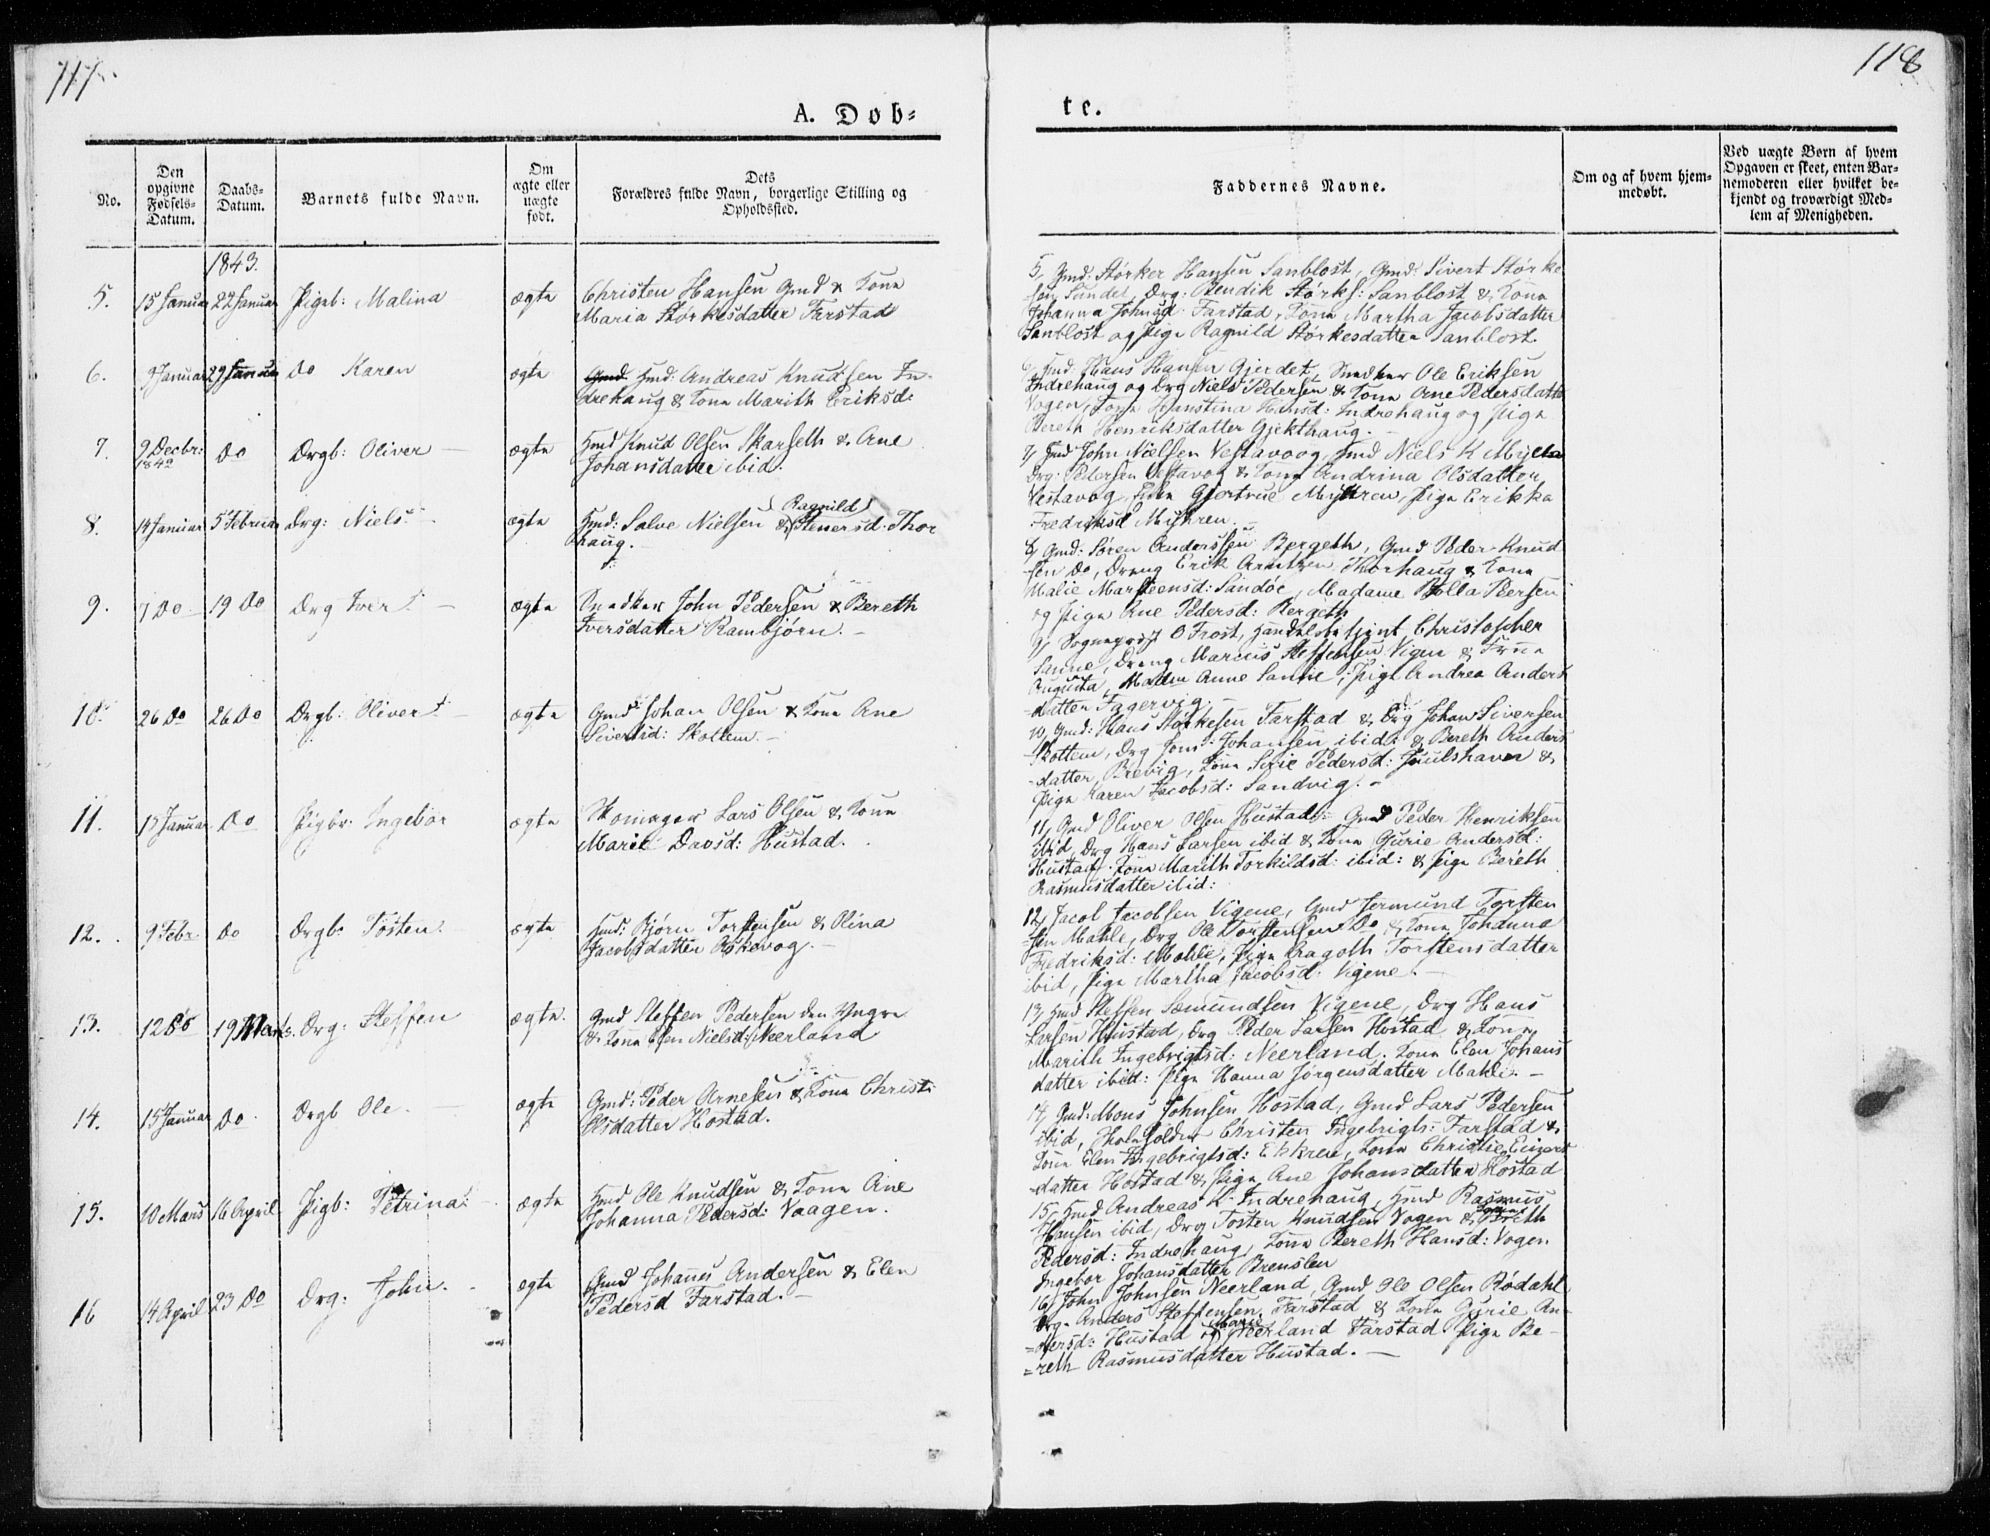 117.
118
A. Døb-
te.
No.
Den opgivne Fødsels-Datum.
Daabs-Datum.
Barnets fulde Navn.
Om ægte eller uægte født.
Dets
Forældres fulde Navn, borgerlige Stilling og
Opholdssted.
Faddernes Navne.
Om og af hvem hjem-
medøbt.
Ved uægte Børn af hvem
Opgaven er skeet, enten Bar-
nemoderen eller hvilket be-
kjendt og troværdigt Med-
lem af Menigheden.
1843.
5. 15 Januar 22 Januar Pigeb: Malina ægte Christen Hansen Gmd & Kone
Maria Størkesdatter Farstad
6. 9 Januar 29 Januar do Karen ægte Gmd Hmd: Andreas Knudsen In-
drehaug & Kone Marith Eriksd:
7. 9 Decbr: 1842 do Drgb: Oliver ægte Hmd Knud Olsen Skarseth & Ane
Johansdatter ibid.
8. 14 Januar 5 Februar Drg: Niels ægte Hmd: Salve Nielsen & Ragnild Stenersd. Thor
haug.
9. 7 Do 19 Do Drg Iver ægte Snedker John Pedersen & Bereth
Iversdatter Rambjørn.
10. 26 Do 26 Do Drgb: Oliver ægte Gmd Johan Olsen & Kone Ane
Sivertsd: Skottem.
11. 15 Januar Do Pigbr: Ingebor ægte Skomager Lars Olsen & Kone
Marit Davsd: Hustad.
12. 9 Febr do Drgb: Tosten ægte Hmd: Bjørn Torstensen & Olina
Jacobsdatter Askevog.
13. 12 Do 19 Marts. Drg: Steffen ægte. Gmd Steffen Pedersen den Yngre
& Kone Elen Nielsd: Neerland
14. 15 Januar Do Drgb Ole. ægte Gmd: Peder Arnesen & Kone Christi
Olsdatter Hostad.
15. 10 Mars 16 April Pigb: Petrina ægte Hmd Ole Knudsen & Kone Ane
Johanna Pedersd: Vaagen.
16 14 April 23 Do Drg: John. ægte Gmd Johanes Andersen & Elen
Pedersd Farstad.
5, Gmd: Størker Hansen Sanblost, Gmd: Sivert Størke
sen Sundet, Drg: Bendik Størks: Sanblost & Kone
Johanna Johnsd: Farstad, Kone Martha Jacobsdatter
Sanblost og Pige Ragnild Størkesdatter Sanblost.
6, Hmd: Hans Hansen Gjerdet, Snedker Ole Eriksen
Indrehaug og Drg Niels Pedersen & Kone Ane Pedersdatter
Vogen, Kone Hanstina Hansd: Indrehaug og Pige
Bereth Henriksdatter Gjekthaug.
7, Hmd John Nielsen Vestavoog, Hmd Niels K Myhren
Drg: Pedersen Vestavog & Kone Andrina Olsdatter
Vestavog, Gjertrue Myhren, Pige Erikka
Fredriksd Myhren.
8, Gmd: Søren Anderssen Bergeth, Gmd Peder Knud
sen do, Dreng Erik Arntzen Thorhaug & Kone
Malie Marteensd: Sandøe, Madame Bolla Iversen
og Pige Ane Pedersd: Bergeth
9, Sogneprest O Frost, Handelsbetjent Christopher
Sanne, Dreng Marcus Steffensen Vigene & Frue
Augusta, Madm Anne Sanne, Pige Andrea Anders
datter Fagervig.
10, Gmd: Hans Størkesen Farstad & Drg Johan Siversen
Skottem, Drg Jons Johansen ibid: & Bereth Anders
datter Brevig, Kone Sirie Pedersd: Juulshavn &
Pige Karen Jacobsd: Sandvig.
11, Gmd Oliver Olsen Hustad, Gmd Peder Henriksen
ibid, Drg Hans Larsen ibid & Kone Gurie Andersd:
Hustad, Kone Marith Torkildsd: ibid: & Pige Bereth
Rasmusdatter ibid:
12, Jacob Jacobsen Vigene, Gmd Jermund Torsten
sen Mahle, Drg Ole Torstensen Do & Kone Johanna
Fredriksd: Mahle, Pige Ragoth Torstensdatter
ibid, Pige Martha Jacobsd: Vigene.
13, Hmd Steffen Semundsen Vigene, Drg Hans
Larsen Hustad, Drg Peder Larsen Hostad & Kone
Marith Ingebrigtsd: Neerland. Kone Elen Johans
datter ibid: Pige Hanna Jørgensdatter Mahle.
14, Gmd: Mons Johnsen Hostad, Gmd Lars Pedersen
ibid, Skoleholder Christen Ingebrigts: Farstad &
Kone Elen Ingebrigtsd: Eskren, Kone Christie Einers
datter Hostad & Pige Ane Johansdatter Hostad
15, Hmd Andreas K. Indrehaug, Hmd Rasmus
Hansen ibid, Drg Tosten Knudsen Vogen & Breth
Pedersd: Indrehaug, Kone Bereth Hansd: Vogen
Ingebor Johansdatter Brenslen
16, John Johnsen Neerland, Gmd Ole Olsen Rødahl
Drg. Anders Steffensen Farstad & Kone Gurie An-
dersd: Hustad, Marie Neerland Farstad Pige Be-
reth Rasmusdatter Hustad.